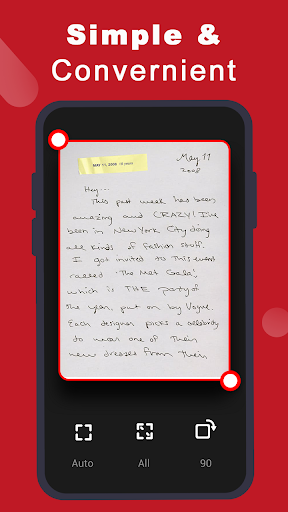 Simple &
Convernient
MAY 11, 2008
May 11
2008
Hey---
This past week has been
amazing and CRAZY! I've
been in New York City doing
all kinds of fashion stuff.
I got invited to this event
called 'The Met Gala',
which is THE party of
the year, put on by Vogue.
Each designer picks a celebrity
to wear one of their
new dresses from their
Auto
All
90